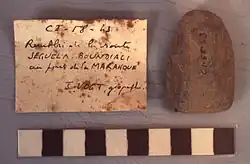 CI-18-43
Remblai de la route
SEGUELA-BOUNDIALI
au pont de la MARAHOUE
J. VOGT, géographe.